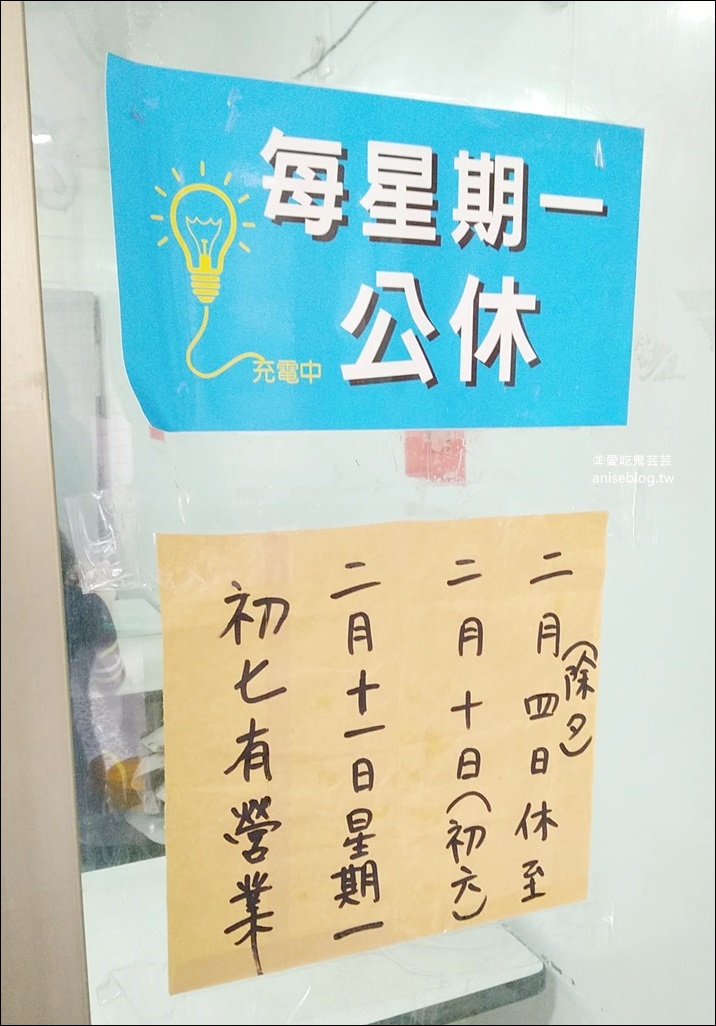 每星期一
公休
充電中
㊣愛吃鬼芸芸
aniseblog.tw
二月四日休至
(除夕)
二月十日(初六)
二月十一日星期一
初七有營業